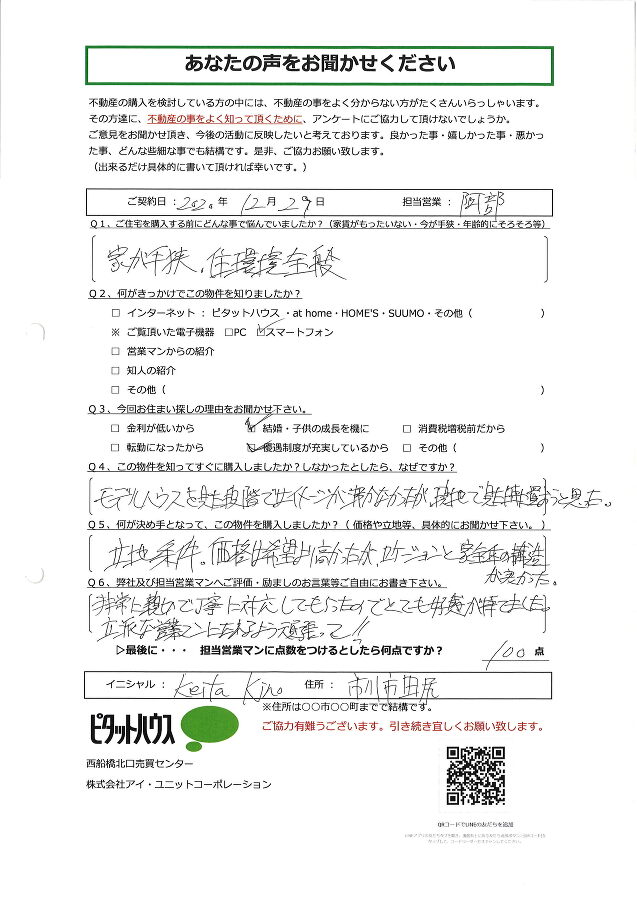 あなたの声をお聞かせください
不動産の購入を検討している方の中には、不動産の事をよく分からない方がたくさんいらっしゃいます。
その方達に、不動産の事をよく知って頂くために、アンケートにご協力して頂けないでしょうか。
ご意見をお聞かせ頂き、今後の活動に反映したいと考えております。良かった事・嬉しかった事・悪かっ
た事、どんな些細な事でも結構です。是非、ご協力お願い致します。
（出来るだけ具体的に書いて頂ければ幸いです。）
ご契約日：2020年 12月 29日 担当営業： 阿部
Ｑ１、ご住宅を購入する前にどんな事で悩んでいましたか？（家賃がもったいない・今が手狭・年齢的にそろそろ等）
家が手狭、住環境全般
Ｑ２、何がきっかけでこの物件を知りましたか？
□ インターネット：ピタットハウス ・at home・HOME'S・SUUMO・その他（ ）
※ ご覧頂いた電子機器 □PC ☑スマートフォン
□ 営業マンからの紹介
□ 知人の紹介
□ その他（ ）
Ｑ３、今回お住まい探しの理由をお聞かせ下さい。
□ 金利が低いから ☑ 結婚・子供の成長を機に □ 消費税増税前だから
□ 転勤になったから ☑ 優遇制度が充実しているから □ その他（ ）
Ｑ４、この物件を知ってすぐに購入しましたか？しなかったとしたら、なぜですか？
モデルハウスを見た段階ではイメージが沸かなかったが、現地で見た時買おうと思った。
Ｑ５、何が決め手となって、この物件を購入しましたか？（ 価格や立地等、具体的にお聞かせ下さい。）
立地条件。価格は希望より高かったが、ロケーションと家全体の構造
が良かった。
Ｑ６、弊社及び担当営業マンへご評価・励ましのお言葉等ご自由にお書き下さい。
非常に親切で丁寧に対応してもらったのでとても好感が持てました。
立派な営業マンになれるよう頑張って!!
▷最後に・・・ 担当営業マンに点数をつけるとしたら何点ですか？ 100 点
イニシャル： Keita Kino 住所： 市川市田尻
※住所は〇〇市〇〇町までで結構です。
ピタットハウス
ご協力有難うございます。引き続き宜しくお願い致します。
西船橋北口売買センター
株式会社アイ・ユニットコーポレーション
QRコードでLINEの友だちを追加